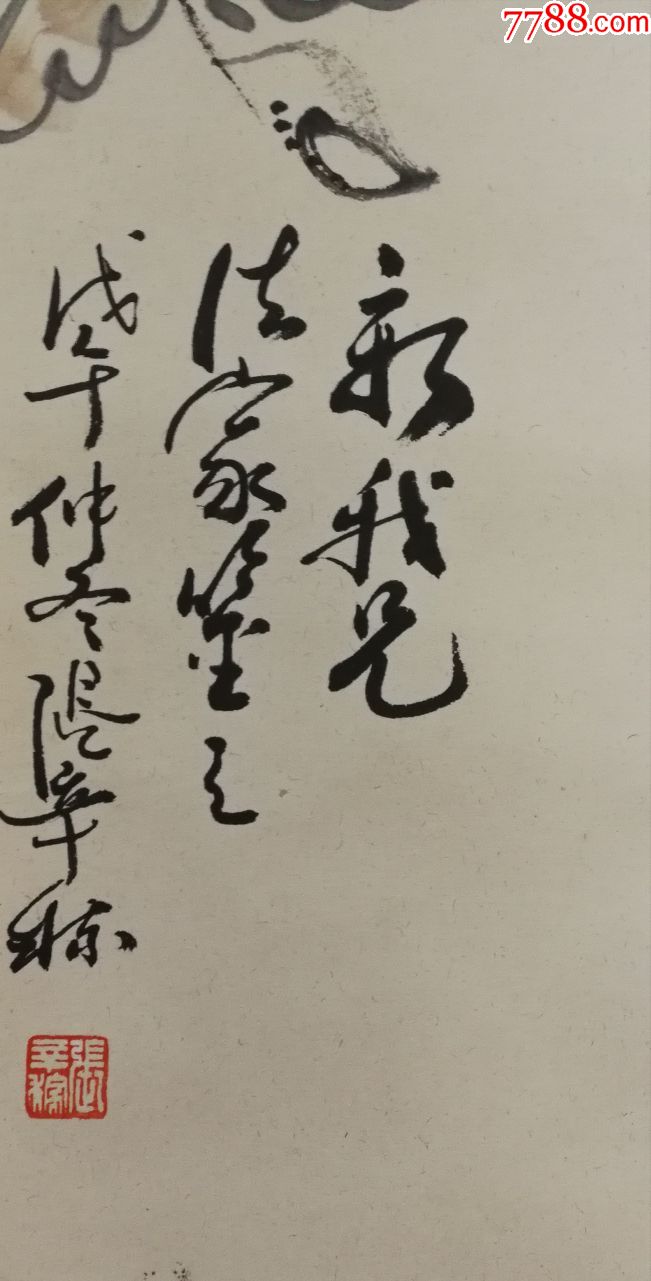 7788.com
新我兄
法家鉴之
戊午仲冬张辛稼
张辛稼